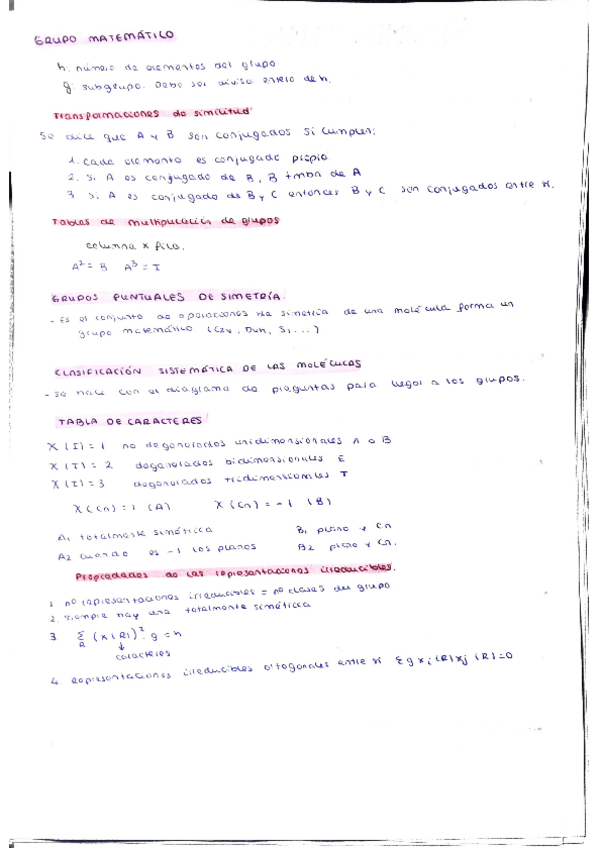 GRUPO MATEMÁTICO
h: número de elementos del grupo
g: subgrupo. Debe ser divisor entero de h.
Transformaciones de similitud
Se dice que A y B son conjugados si cumplen:
1. cada elemento es conjugado propio
2. si A es conjugado de B, B tmbn de A
3. si A es conjugado de B y C entonces B y C son conjugados entre sí.
Tablas de multiplicación de grupos
columna x fila.
A² = B A³ = I
GRUPOS PUNTUALES DE SIMETRÍA.
- Es el conjunto de operaciones de simetría de una molécula forma un
grupo matemático (C2v, Dnh, S,...)
CLASIFICACIÓN SISTEMÁTICA DE LAS MOLÉCULAS
- se hace con el diagrama de preguntas para llegar a los grupos.
TABLA DE CARACTERES
X (I) = 1 no degenerados unidimensionales A o B
X (I) = 2 degenerados bidimensionales E
X (I) = 3 degenerados tridimensionales T
X (Cn) = 1 (A) X (Cn) = -1 (B)
A1 totalmente simétrica B1 plano y Cn
A2 cuando es -1 los planos B2 plano y Cn.
Propiedades de las representaciones irreducibles.
1. nº representaciones irreducibles = nº clases del grupo
2. siempre hay una totalmente simétrica
3. Σ (X(R))² · g = h
R
↓
caracteres
4. Representaciones irreducibles ortogonales entre sí Σ g xi (R) xj (R) = 0